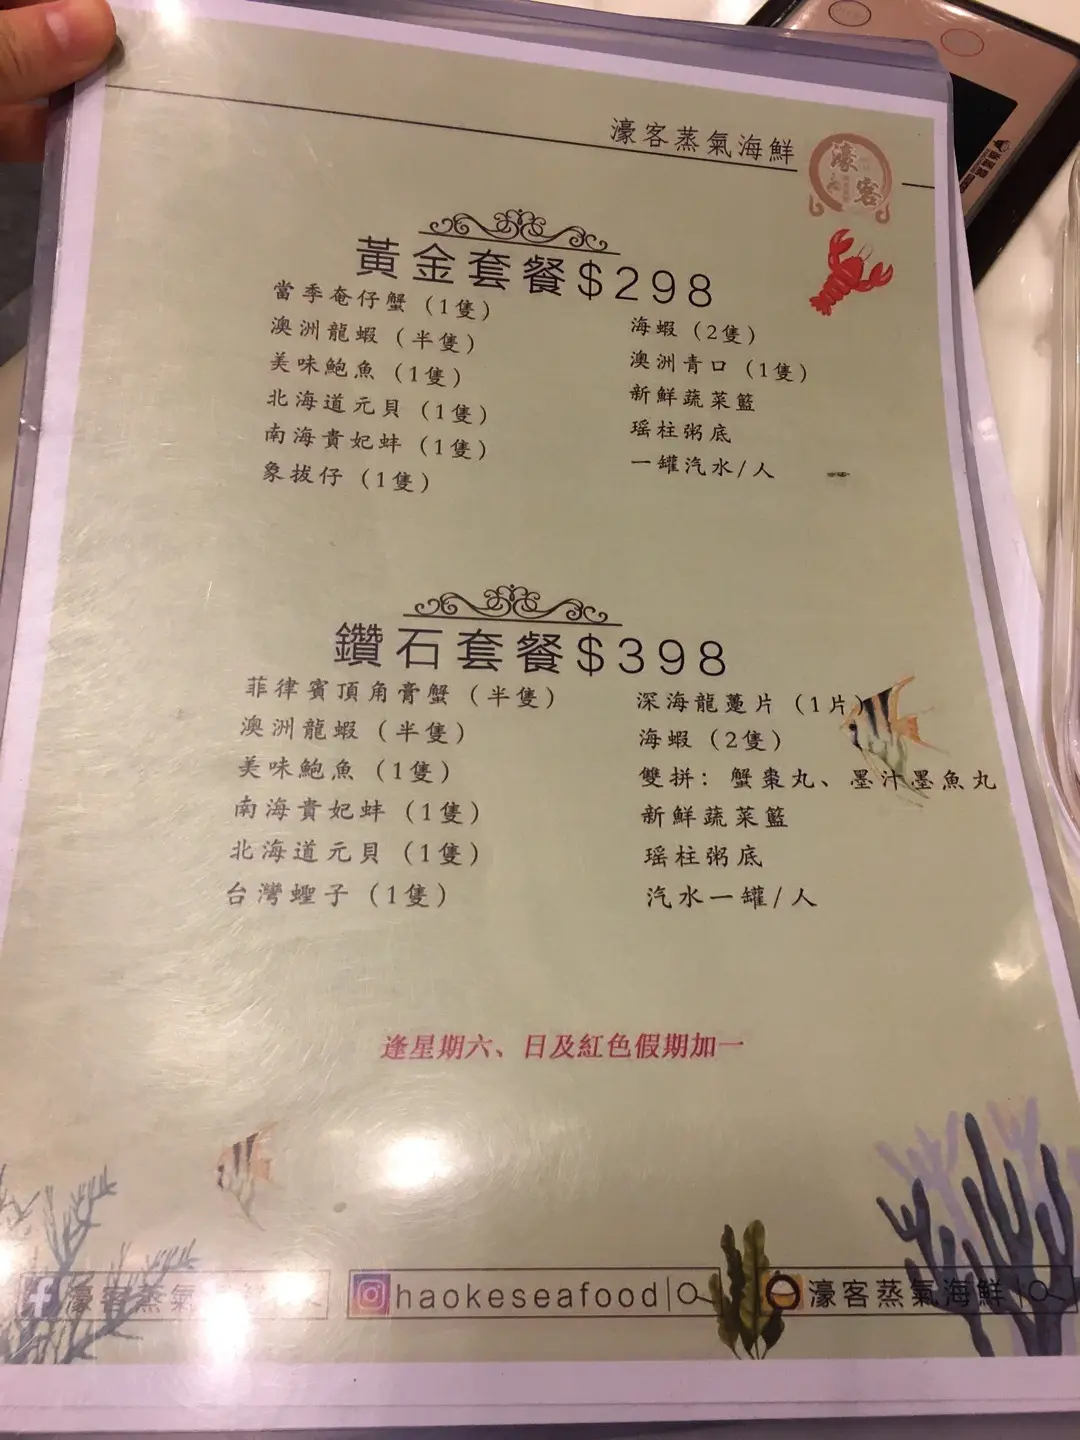 濠客蒸氣海鮮
濠客
黃金套餐$298
當季奄仔蟹 (1隻)
澳洲龍蝦 (半隻)
美味鮑魚 (1隻)
北海道元貝 (1隻)
南海貴妃蚌 (1隻)
象拔仔 (1隻)
海蝦 (2隻)
澳洲青口 (1隻)
新鮮蔬菜籃
瑶柱粥底
一罐汽水/人
鑽石套餐$398
菲律賓頂角膏蟹 (半隻)
澳洲龍蝦 (半隻)
美味鮑魚 (1隻)
南海貴妃蚌 (1隻)
北海道元貝 (1隻)
台灣蟶子 (1隻)
深海龍躉片 (1片)
海蝦 (2隻)
雙拼: 蟹棗丸、墨汁墨魚丸
新鮮蔬菜籃
瑶柱粥底
汽水一罐/人
逢星期六、日及紅色假期加一
濠客蒸氣
haokeseafood
濠客蒸氣海鮮